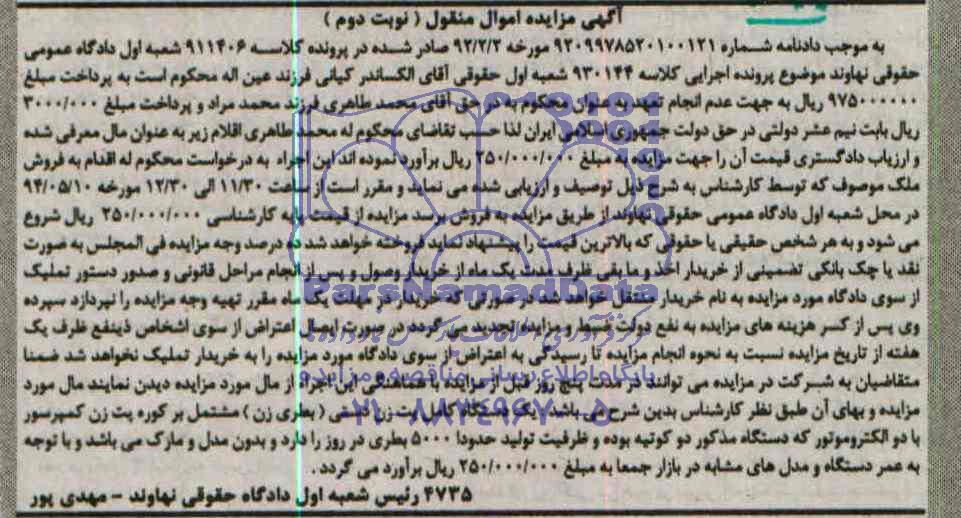 آگهی مزایده اموال منقول ( نوبت دوم )
به موجب دادنامه شماره ۹۲۰۹۹۷۸۵۲۰۱۰۰۱۲۱ مورخه ۹۲/۲/۲ صادر شده در پرونده کلاسه ۹۱۱۴۰۶ شعبه اول دادگاه عمومی
حقوقی نهاوند موضوع پرونده اجرایی کلاسه ۹۳۰۱۴۴ شعبه اول حقوقی آقای الکساندر کیانی فرزند عین اله محکوم است به پرداخت مبلغ
۹۷۵۰۰۰۰۰۰ ریال به جهت عدم انجام تعهد به عنوان محکوم به در حق آقای محمد طاهری فرزند محمد مراد و پرداخت مبلغ ۳۰۰۰/۰۰۰
ریال بابت نیم عشر دولتی در حق دولت جمهوری اسلامی ایران لذا حسب تقاضای محکوم له محمد طاهری اقلام زیر به عنوان مال معرفی شده
و ارزیاب دادگستری قیمت آن را جهت مزایده به مبلغ ۲۵۰/۰۰۰/۰۰۰ ریال برآورد نموده اند این اجراء به درخواست محکوم له اقدام به فروش
ملک موصوف که توسط کارشناس به شرح ذیل توصیف و ارزیابی شده می نماید و مقرر است از ساعت ۱۱/۳۰ الی ۱۲/۳۰ مورخه ۹۴/۰۵/۱۰
در محل شعبه اول دادگاه عمومی حقوقی نهاوند از طریق مزایده به فروش برسد مزایده از قیمت پایه کارشناسی ۲۵۰/۰۰۰/۰۰۰ ریال شروع
می شود و به هر شخص حقیقی یا حقوقی که بالاترین قیمت را پیشنهاد نماید فروخته خواهد شد ده درصد وجه مزایده فی المجلس به صورت
نقد یا چک بانکی تضمینی از خریدار اخذ و ما بقی ظرف مدت یک ماه از خریدار وصول و پس از انجام مراحل قانونی و صدور دستور تملیک
از سوی دادگاه مورد مزایده به نام خریدار منتقل خواهد شد در صورتی که خریدار در مهلت یک ماه مقرر تهیه وجه مزایده را نپردازد سپرده
وی پس از کسر هزینه های مزایده به نفع دولت ضبط و مزایده تجدید می گردد در صورت ایصال اعتراض از سوی اشخاص ذینفع ظرف یک
هفته از تاریخ مزایده نسبت به نحوه انجام مزایده تا رسیدگی به اعتراض از سوی دادگاه مورد مزایده را به خریدار تملیک نخواهد شد ضمنا
متقاضیان به شرکت در مزایده می توانند در مدت پنج روز قبل از مزایده با هماهنگی این اجراء از مال مورد مزایده دیدن نمایند مال مورد
مزایده و بهای آن طبق نظر کارشناس بدین شرح می باشد: یک دستگاه کامل پت زن دستی ( بطری زن ) مشتمل بر کوره پت زن کمپرسور
با دو الکتروموتور که دستگاه مذکور دو کوتیه بوده و ظرفیت تولید حدودا ۵۰۰۰ بطری در روز را دارد و بدون مدل و مارک می باشد و با توجه
به عمر دستگاه و مدل های مشابه در بازار جمعا به مبلغ ۲۵۰/۰۰۰/۰۰۰ ریال برآورد می گردد .
۴۷۳۵ رئیس شعبه اول دادگاه حقوقی نهاوند - مهدی پور
ParsNamadData
پایگاه اطلاع رسانی مناقصه و مزایده
۰۲۱-۸۸۳۴۹۶۷۰-۵